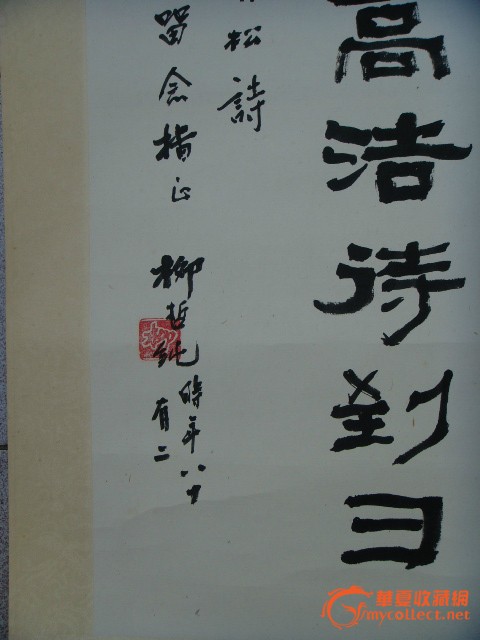 高洁待到彐
松詩
留念指正 柳哲
時年八十
有二
華夏收藏網
mycollect.net